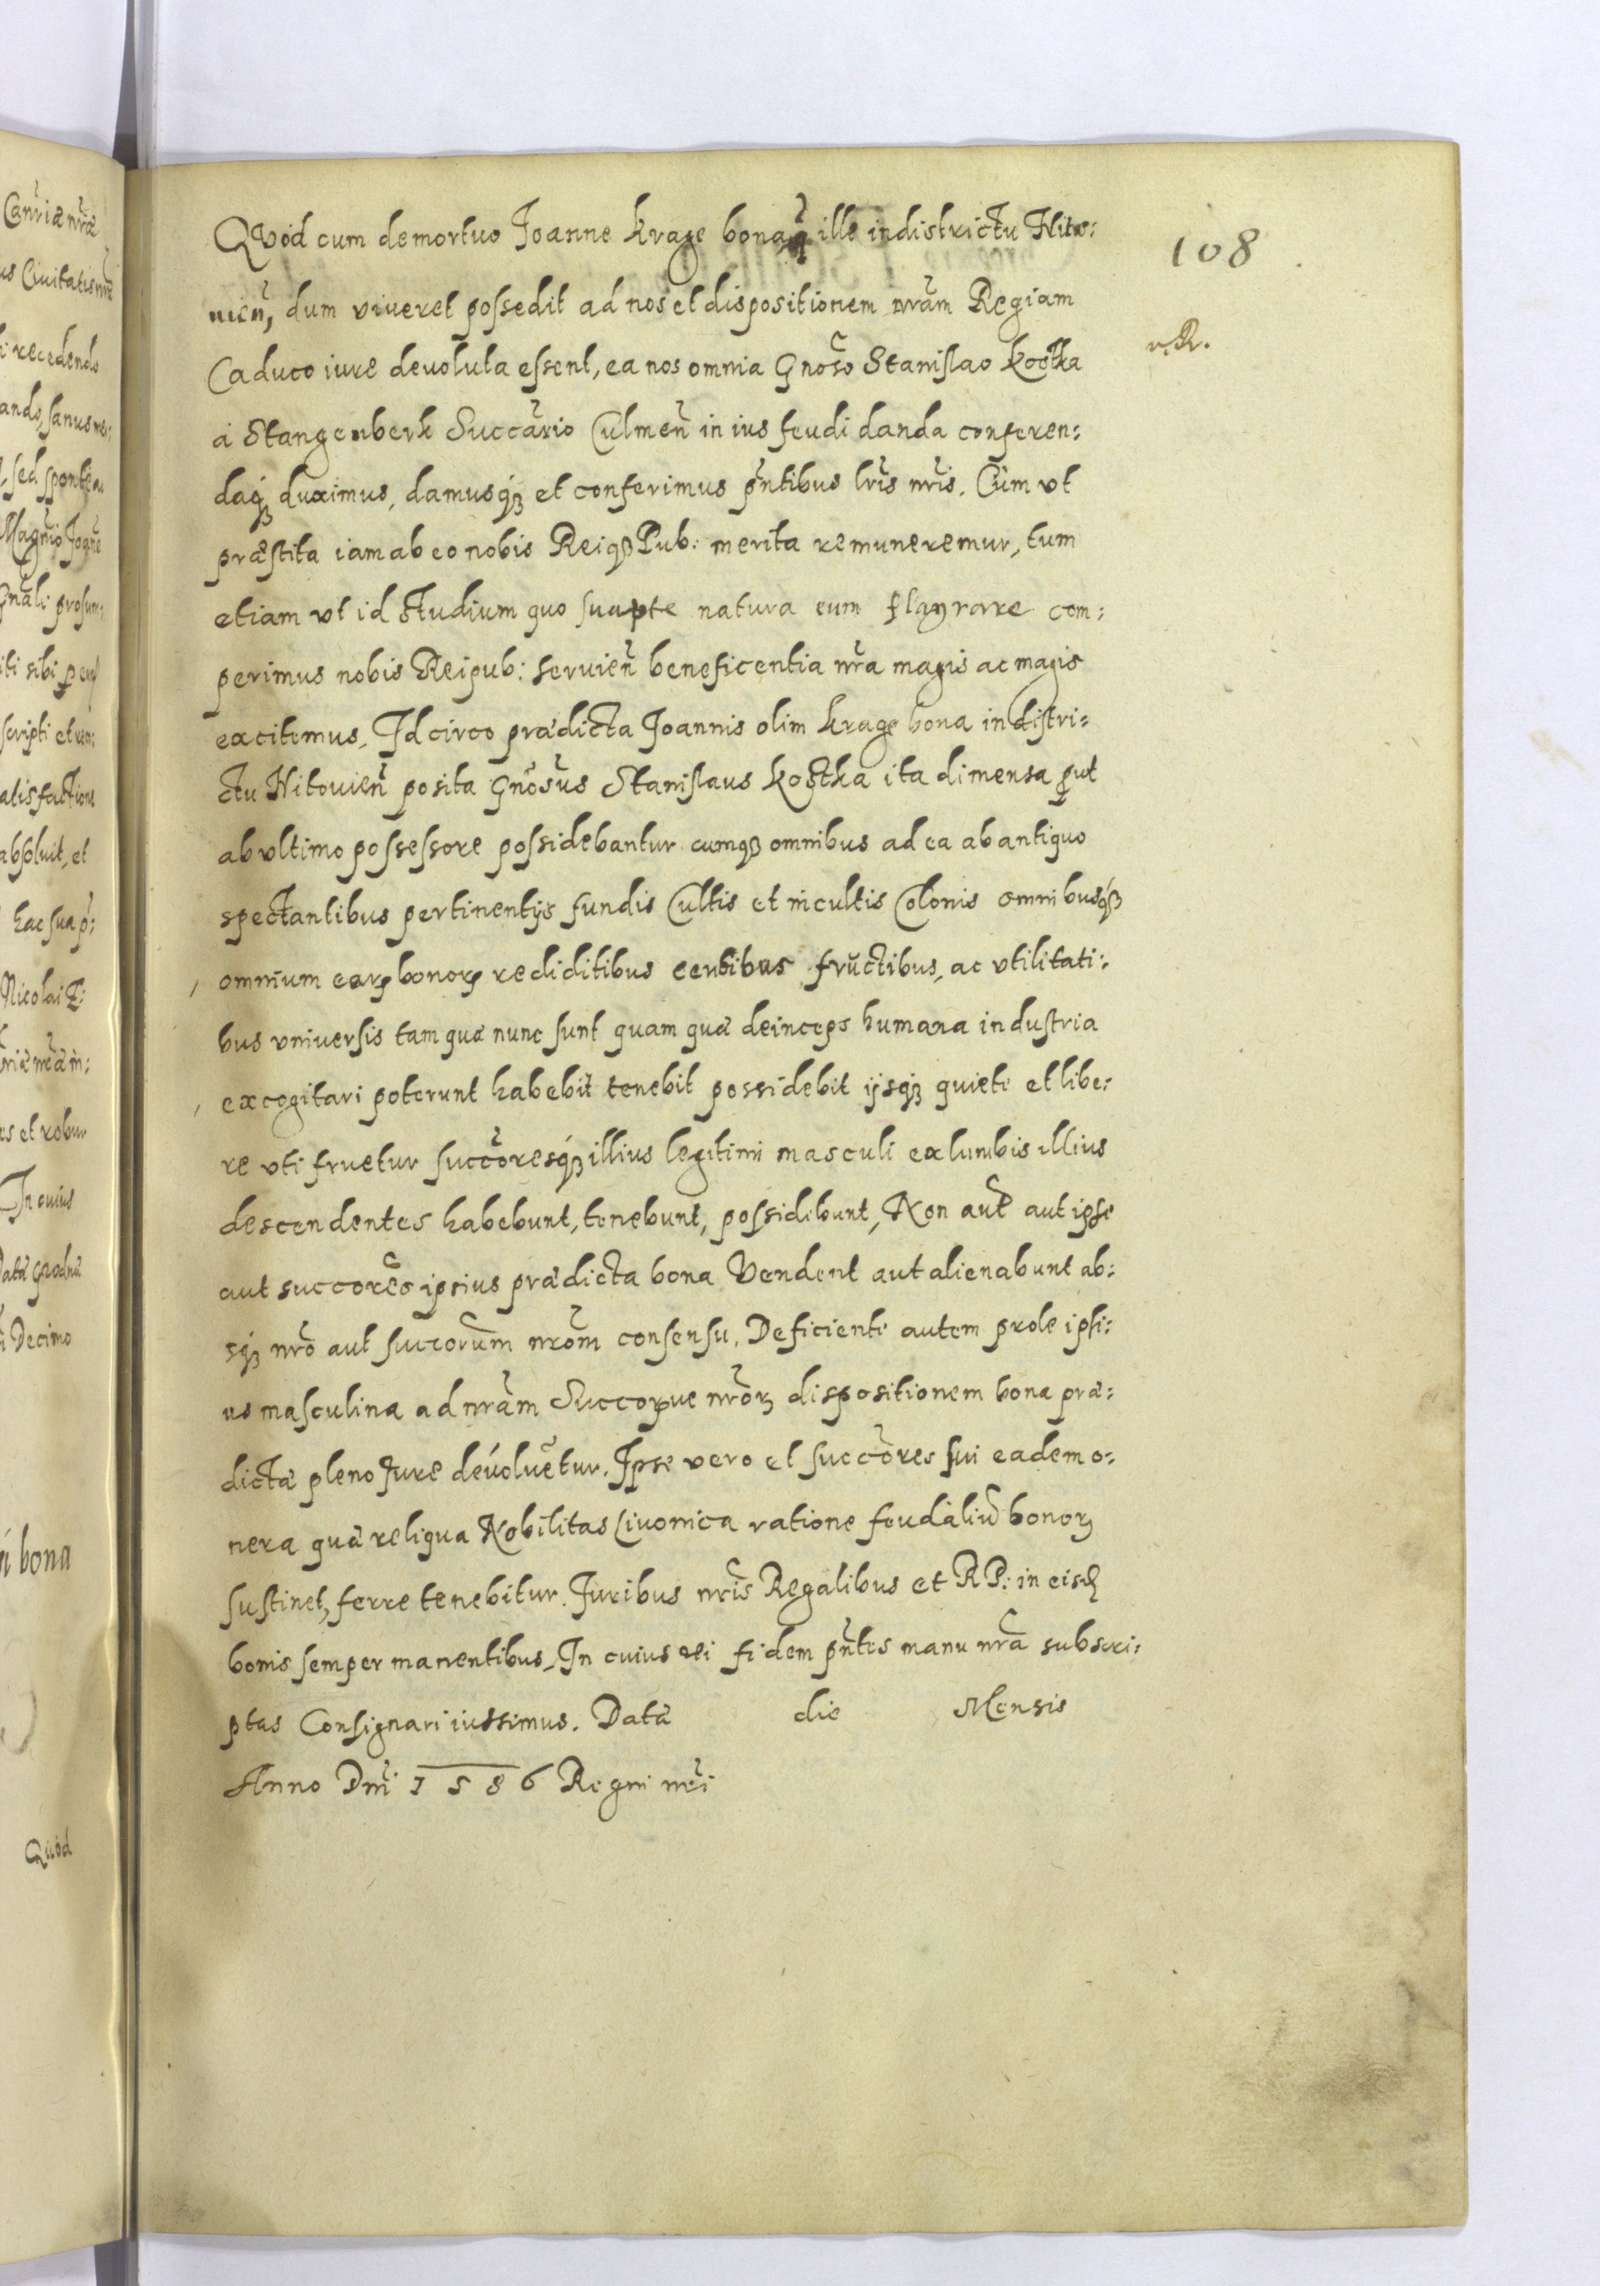 108
Quód cum demortuo Joanne Krage bona q̃ ille in districtu Hito:
uieñ, dum viueret possedit ad nos et dispositionem nr̃am Regiam
v. R.
Caduco iure deuoluta essent, ea nos omnia Gnõso Stanislao Kostka
á Stangenberk Succãrio Culmeñ in ius feudi danda conferen:
daq́ꝫ duximus, damusq́ꝫ et conferimus p̃ntibus lr̃is nr̃is. Cùm vt
præstita iam ab eo nobis Reiqꝫ Pub: merita remuneremur, tum
etiam vt id studium quo suapte natura eum flagrare com:
perimus nobis Reipub: seruieñ beneficentia nr̃a magis ac magis
excitemus, Idcirco prædicta Joannis olim Krage bona in distri:
ctu Hitouieñ posita Gnõsus Stanislaus Kostka ita dimensa ꝓut
ab vltimo possessore possidebantur cumqꝫ omnibus ad ea ab antiquo
spectantibus pertinentijs fundis Cultis et incultis Colonis omnibusq́ꝫ
omnium earꝝ bonorꝝ rediditibus censibus fructibus, ac vtilitati:
bus vniversis tam quæ nunc sunt quam quæ deinceps humana industria
excogitari poterunt habebit tenebit possidebit ijsqꝫ quiete et libe:
re vti fruetur succõresq́ꝫ illius legitimi masculi ex lumbis illius
descendentes habebunt, tenebunt, possidebunt, Non aut̃ aut ipse
aut succorẽs ipsius prædicta bona Vendent aut alienabunt ab:
sqꝫ nr̃o aut succorum̃ nrõm consensu. Deficiente autem prole ipsi:
us masculina ad nr̃am Succorꝝue nr̃oꝝ dispositionem bona præ:
dicta pleno Jure deuoluẽtur. Ipse vero et succõres sui eadem o:
nera quæ reliqua Nobilitas Liuonica ratione feudaliũ bonoꝝ
sustinet, ferre tenebitur. Juribus nr̃is Regalibus et R P: in eisd̃
bonis semper manentibus. In cuius rei fidem p̃ntes manu nr̃a subscri:
ptas Consignari iussimus. Datæ die Mensis
Anno Dñi 1586 Regni nr̃i